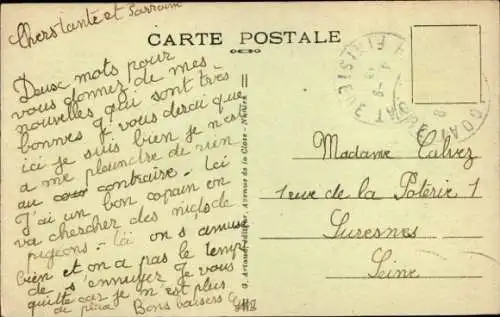 Chers tante et Parrain
CARTE POSTALE
Deux mots pour
vous donner de mes
nouvelles qui sont très
bonnes & vous dirai que
ici je suis bien je n'est
a me plaindre de rien
au contraire. Ici
J'ai un bon copain on
va chercher des nids de
pigeons. Ici on s'amuse
bien et on a pas le temps
de s'ennuyer Je vous
quitte car je m'est plus
Bons baisers
G. Artaud, éditeur, Avenue de la Close - Nantes
Madame Calvez
1 rue de la Poterie 1
Suresnes
Seine
FINISTERE